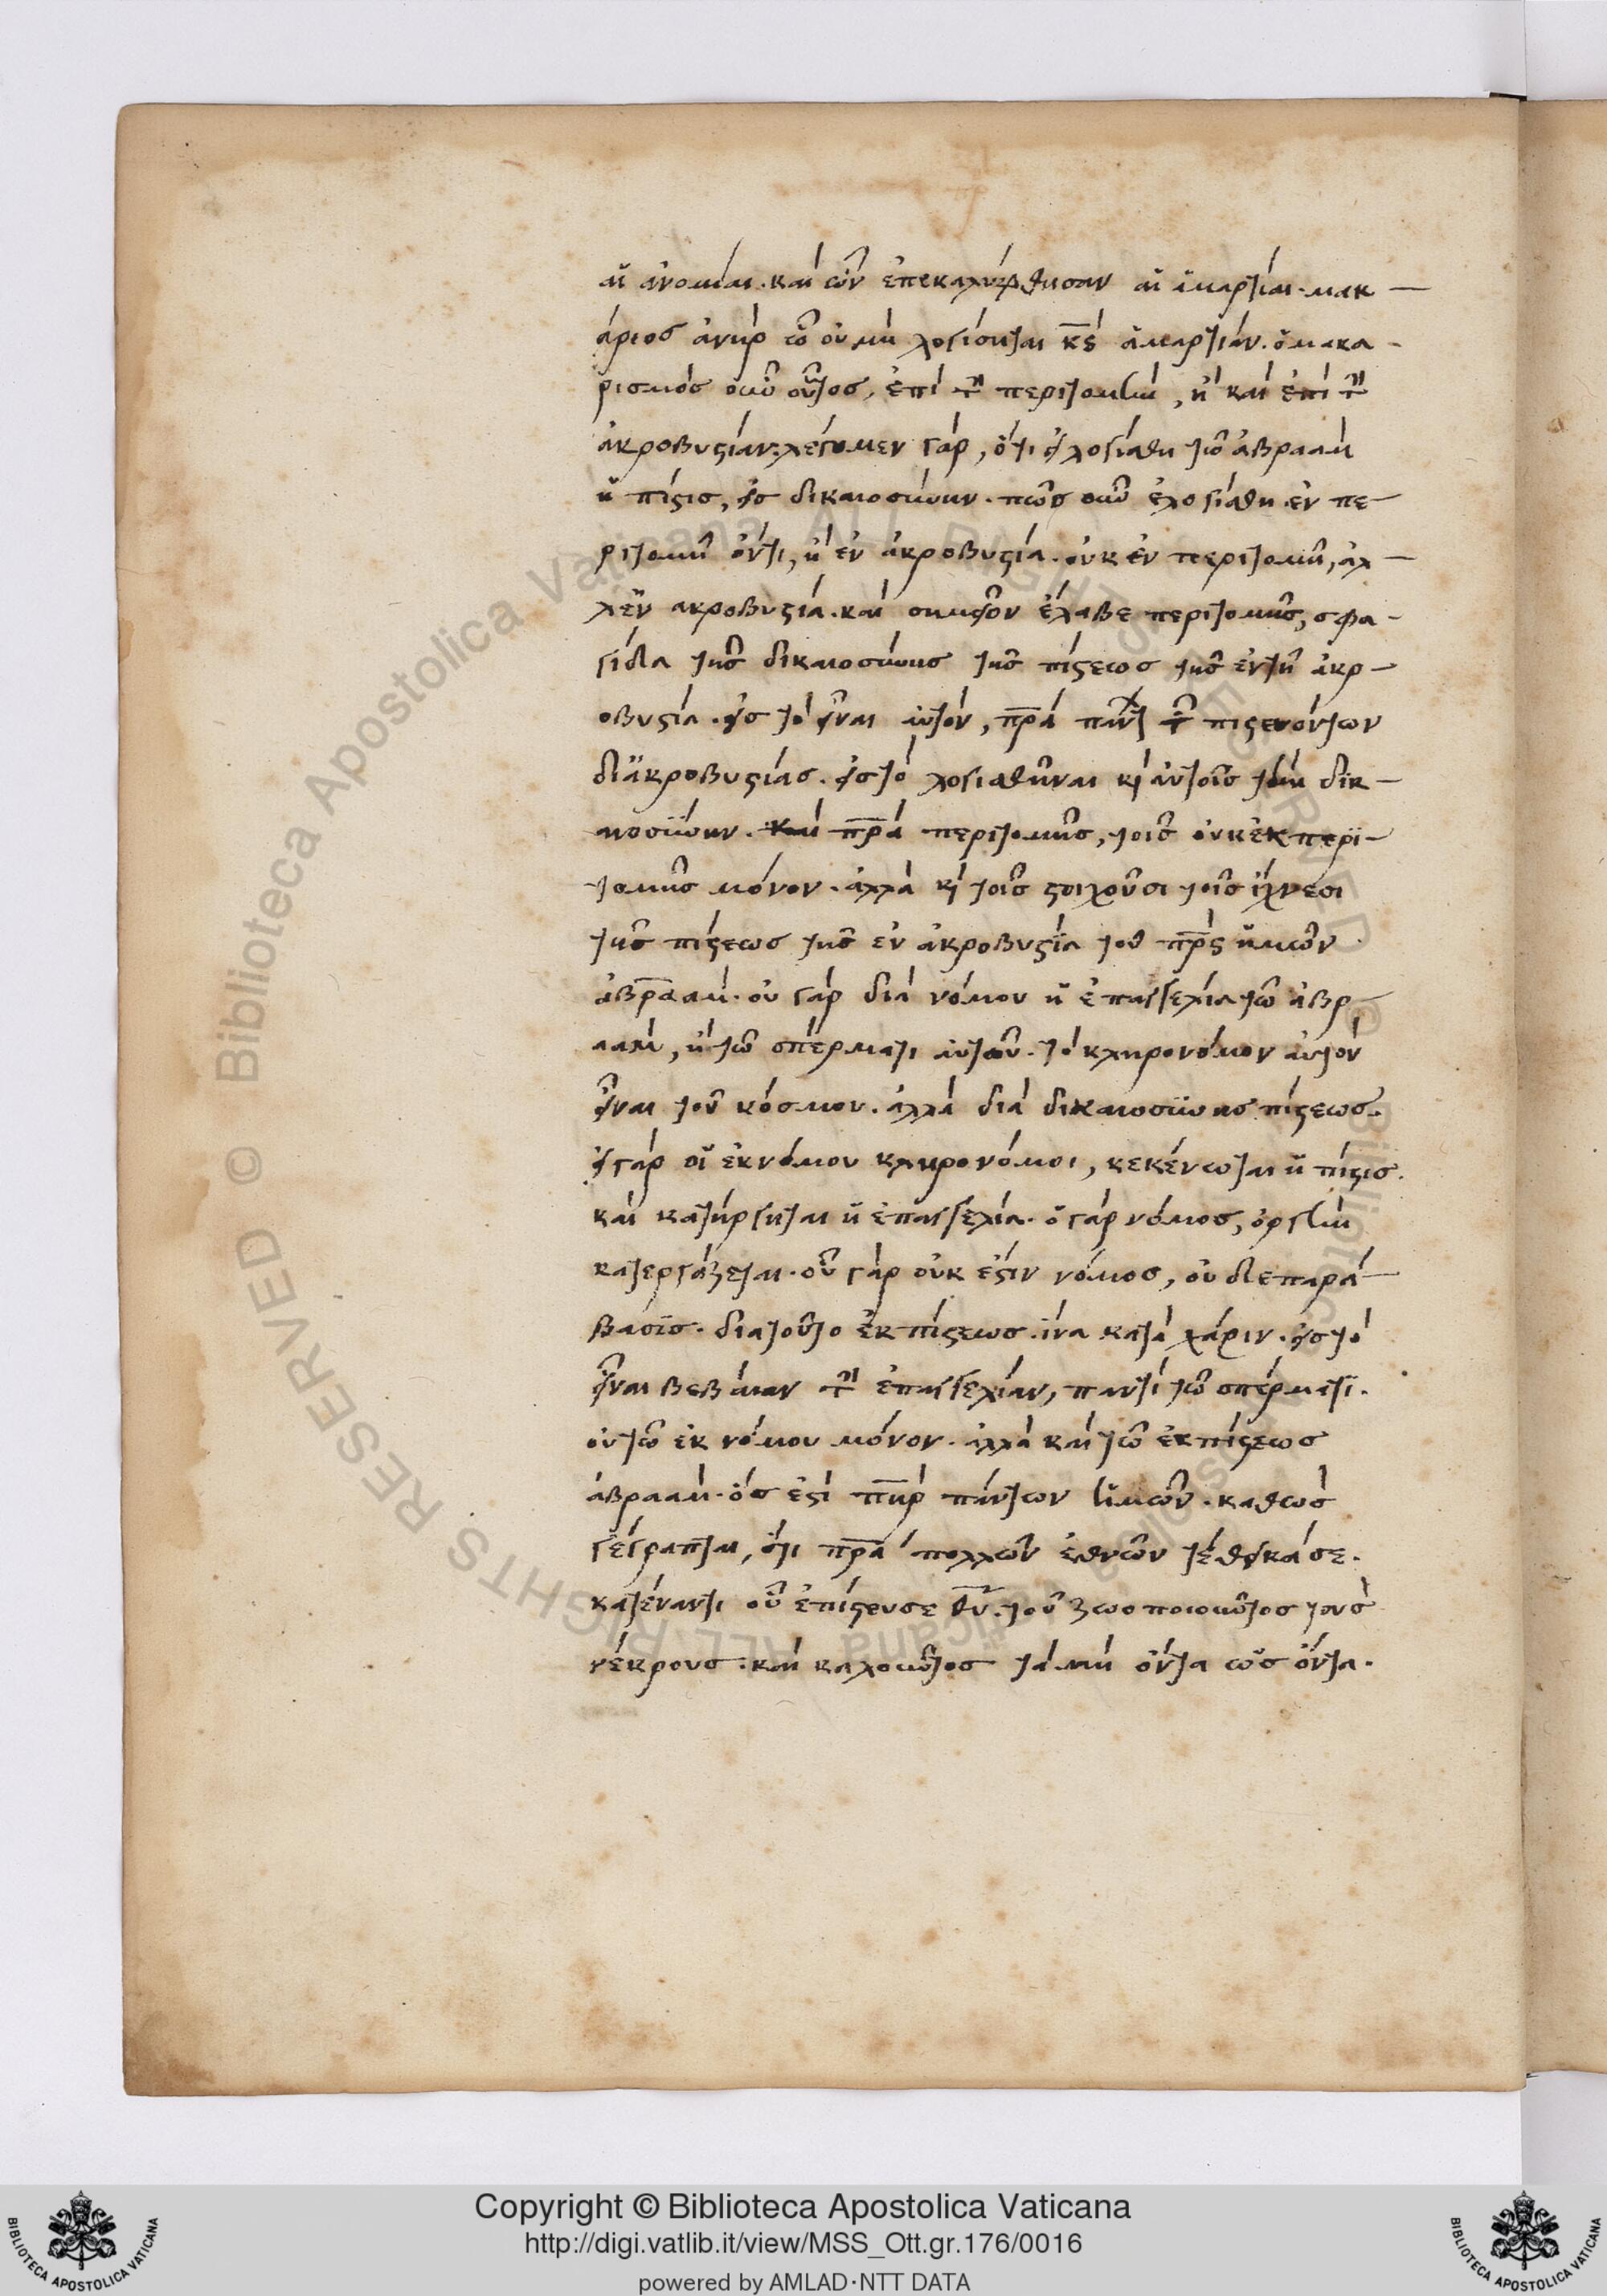 αἱ ἀνομίαι. καὶ ὧν ἐπεκαλύφθησαν αἱ ἁμαρτίαι. μακ
άριος ἀνὴρ ᾧ οὐ μὴ λογίσηται κ̅ς̅ ἁμαρτίαν. ὁ μακα
ρισμὸς οὖν οὗτος, ἐπὶ τὴν περιτομὴν, ἢ καὶ ἐπὶ τὴν
ἀκροβυστίαν. λέγομεν γὰρ, ὅτι ἐλογίσθη τῶ ἀβραὰμ
ἡ πίστις, εἰς δικαιοσύνην. πῶς οὖν ἐλογίσθη. ἐν πε
ριτομῆ ὄντι, ἢ ἐν ἀκροβυστία. οὐκ ἐν περιτομῆ, ἀλ
λἐν ακροβυστία. καὶ σημεῖον ἔλαβε περιτομῆς, σφρα
γίδα τῆς δικαιοσύνης τῆς πίστεως τῆς ἐν τῆ ἀκρ
οβυστία. εἰς τὸ εἶναι αὐτὸν, π̅ρ̅α πάντων τῶν πιστευόντων
δι ἀκροβυστίας. εἰς τὸ λογισθῆναι κ αὐτοῖς τὴν δικ
αιοσύνην. καὶ π̅ρ̅α περιτομῆς, τοῖς οὐκ ἐκ περι
τομῆς μόνον. ἀλλὰ κ τοῖς στοιχοῦσι τοῖς ἴχνεσι
τῆς πίστεως τῆς ἐν ἀκροβυστία τοῦ π̅ρ̅ς ἡμῶν
ἀβραάμ. οὐ γὰρ διὰ νόμου ἡ ἐπαγγελία τῶ ἀβρ
αὰμ, ἢ τῶ σπέρματι αὐτοῦ. τὸ κληρονόμον αὐτὸν
εἶναι τοῦ κόσμου. ἀλλὰ διὰ δικαιοσύνης πίστεως.
εἰ γὰρ οἱ ἐκ νόμου κληρονόμοι, κεκένωται ἡ πίστις.
καὶ κατήργηται ἡ ἐπαγγελία. ὁ γὰρ νόμος, ὀργὴν
κατεργάζεται. οὗ γὰρ οὐκ ἔστιν νόμος, οὐδὲ παρά
βασις. διατοῦτο ἐκ πίστεως. ἵνα κατὰ χάριν. εἰς τὸ
εἶναι βεβαίαν τὴν ἐπαγγελίαν, παντὶ τῶ σπέρματι.
οὐ τῶ ἐκ νόμου μόνον. ἀλλὰ καὶ τῶ ἐκ πίστεως
ἀβραάμ. ὅς ἐστι π̅η̅ρ πάντων ἡμῶν. καθὼς
γέγραπται, ὅτι π̅ρ̅α πολλῶν ἐθνῶν τέθεικά σε.
κατέναντι οὗ ἐπίστευσε θ̅υ̅. τοῦ ζωοποιοῦντος τοὺς
νέκρους. καὶ καλοῦντος τὰ μὴ ὄντα ὡς ὄντα.
Copyright © Biblioteca Apostolica Vaticana
http://digi.vatlib.it/view/MSS_Ott.gr.176/0016
powered by AMLAD·NTT DATA